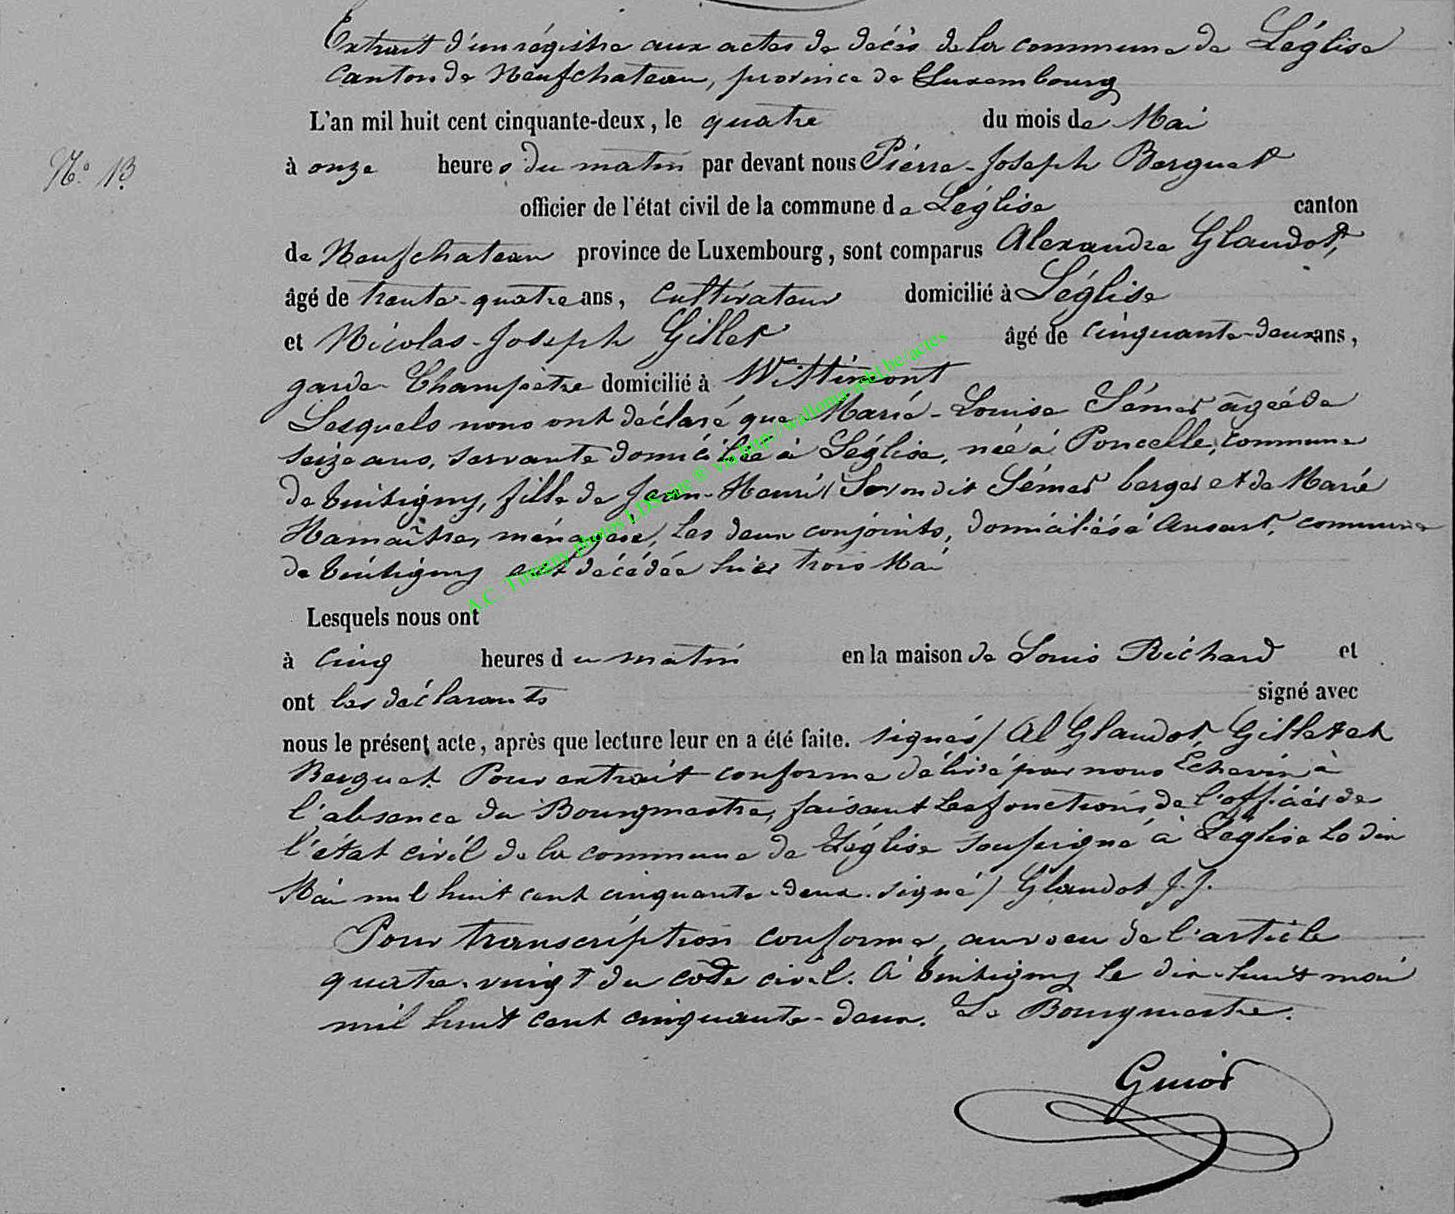 Extrait d'un régistre aux actes de décès de la commune de Léglise
Canton de Neufchateau, province de Luxembourg
L'an mil huit cent cinquante-deux, le quatre du mois de Mai
N.º 13.
à onze heures du matin par devant nous Pierre-Joseph Berguet
officier de l'état civil de la commune de Léglise canton
de Neufchateau province de Luxembourg, sont comparus Alexandre Glaudot,
âgé de trente-quatre ans, Cultivateur domicilié à Léglise
et Nicolas-Joseph Gillet âgé de cinquante-deux ans,
garde Champêtre domicilié à Wittimont
Lesquels nous ont déclaré que Marie-Louise Sémes âgée de
seize ans, servante domiciliée à Léglise, née à Poncelle, commune
de tintigny, fille de Jean-Henri dit Sémes berger et de Marie
Hamaître, ménagère, les deux conjoints, domiciliés à Ansart, commune
de tintigny est décédée hier trois Mai
Lesquels nous ont
à cinq heures du matin en la maison de Louis Richard et
ont les déclarants signé avec
nous le présent acte, après que lecture leur en a été faite. signés/ Al Glaudot, Gillet et
Berguet. Pour extrait conforme délivré par nous Échevin à
l'absence du Bourgmestre, faisant les fonctions de l'officier de
l'état civil de la commune de Léglise soussigné à Léglise le dix
Mai mil huit cent cinquante-deux. signé/ Glaudot J. J.
Pour transcription conforme, au vœu de l'article
quatre-vingt du code civil. A tintigny le dix-huit mai
mil huit cent cinquante-deux. Le Bourgmestre.
Guiot
A.C. Tintigny photos LDS site ® via http://wallonia-asbl.be/actes